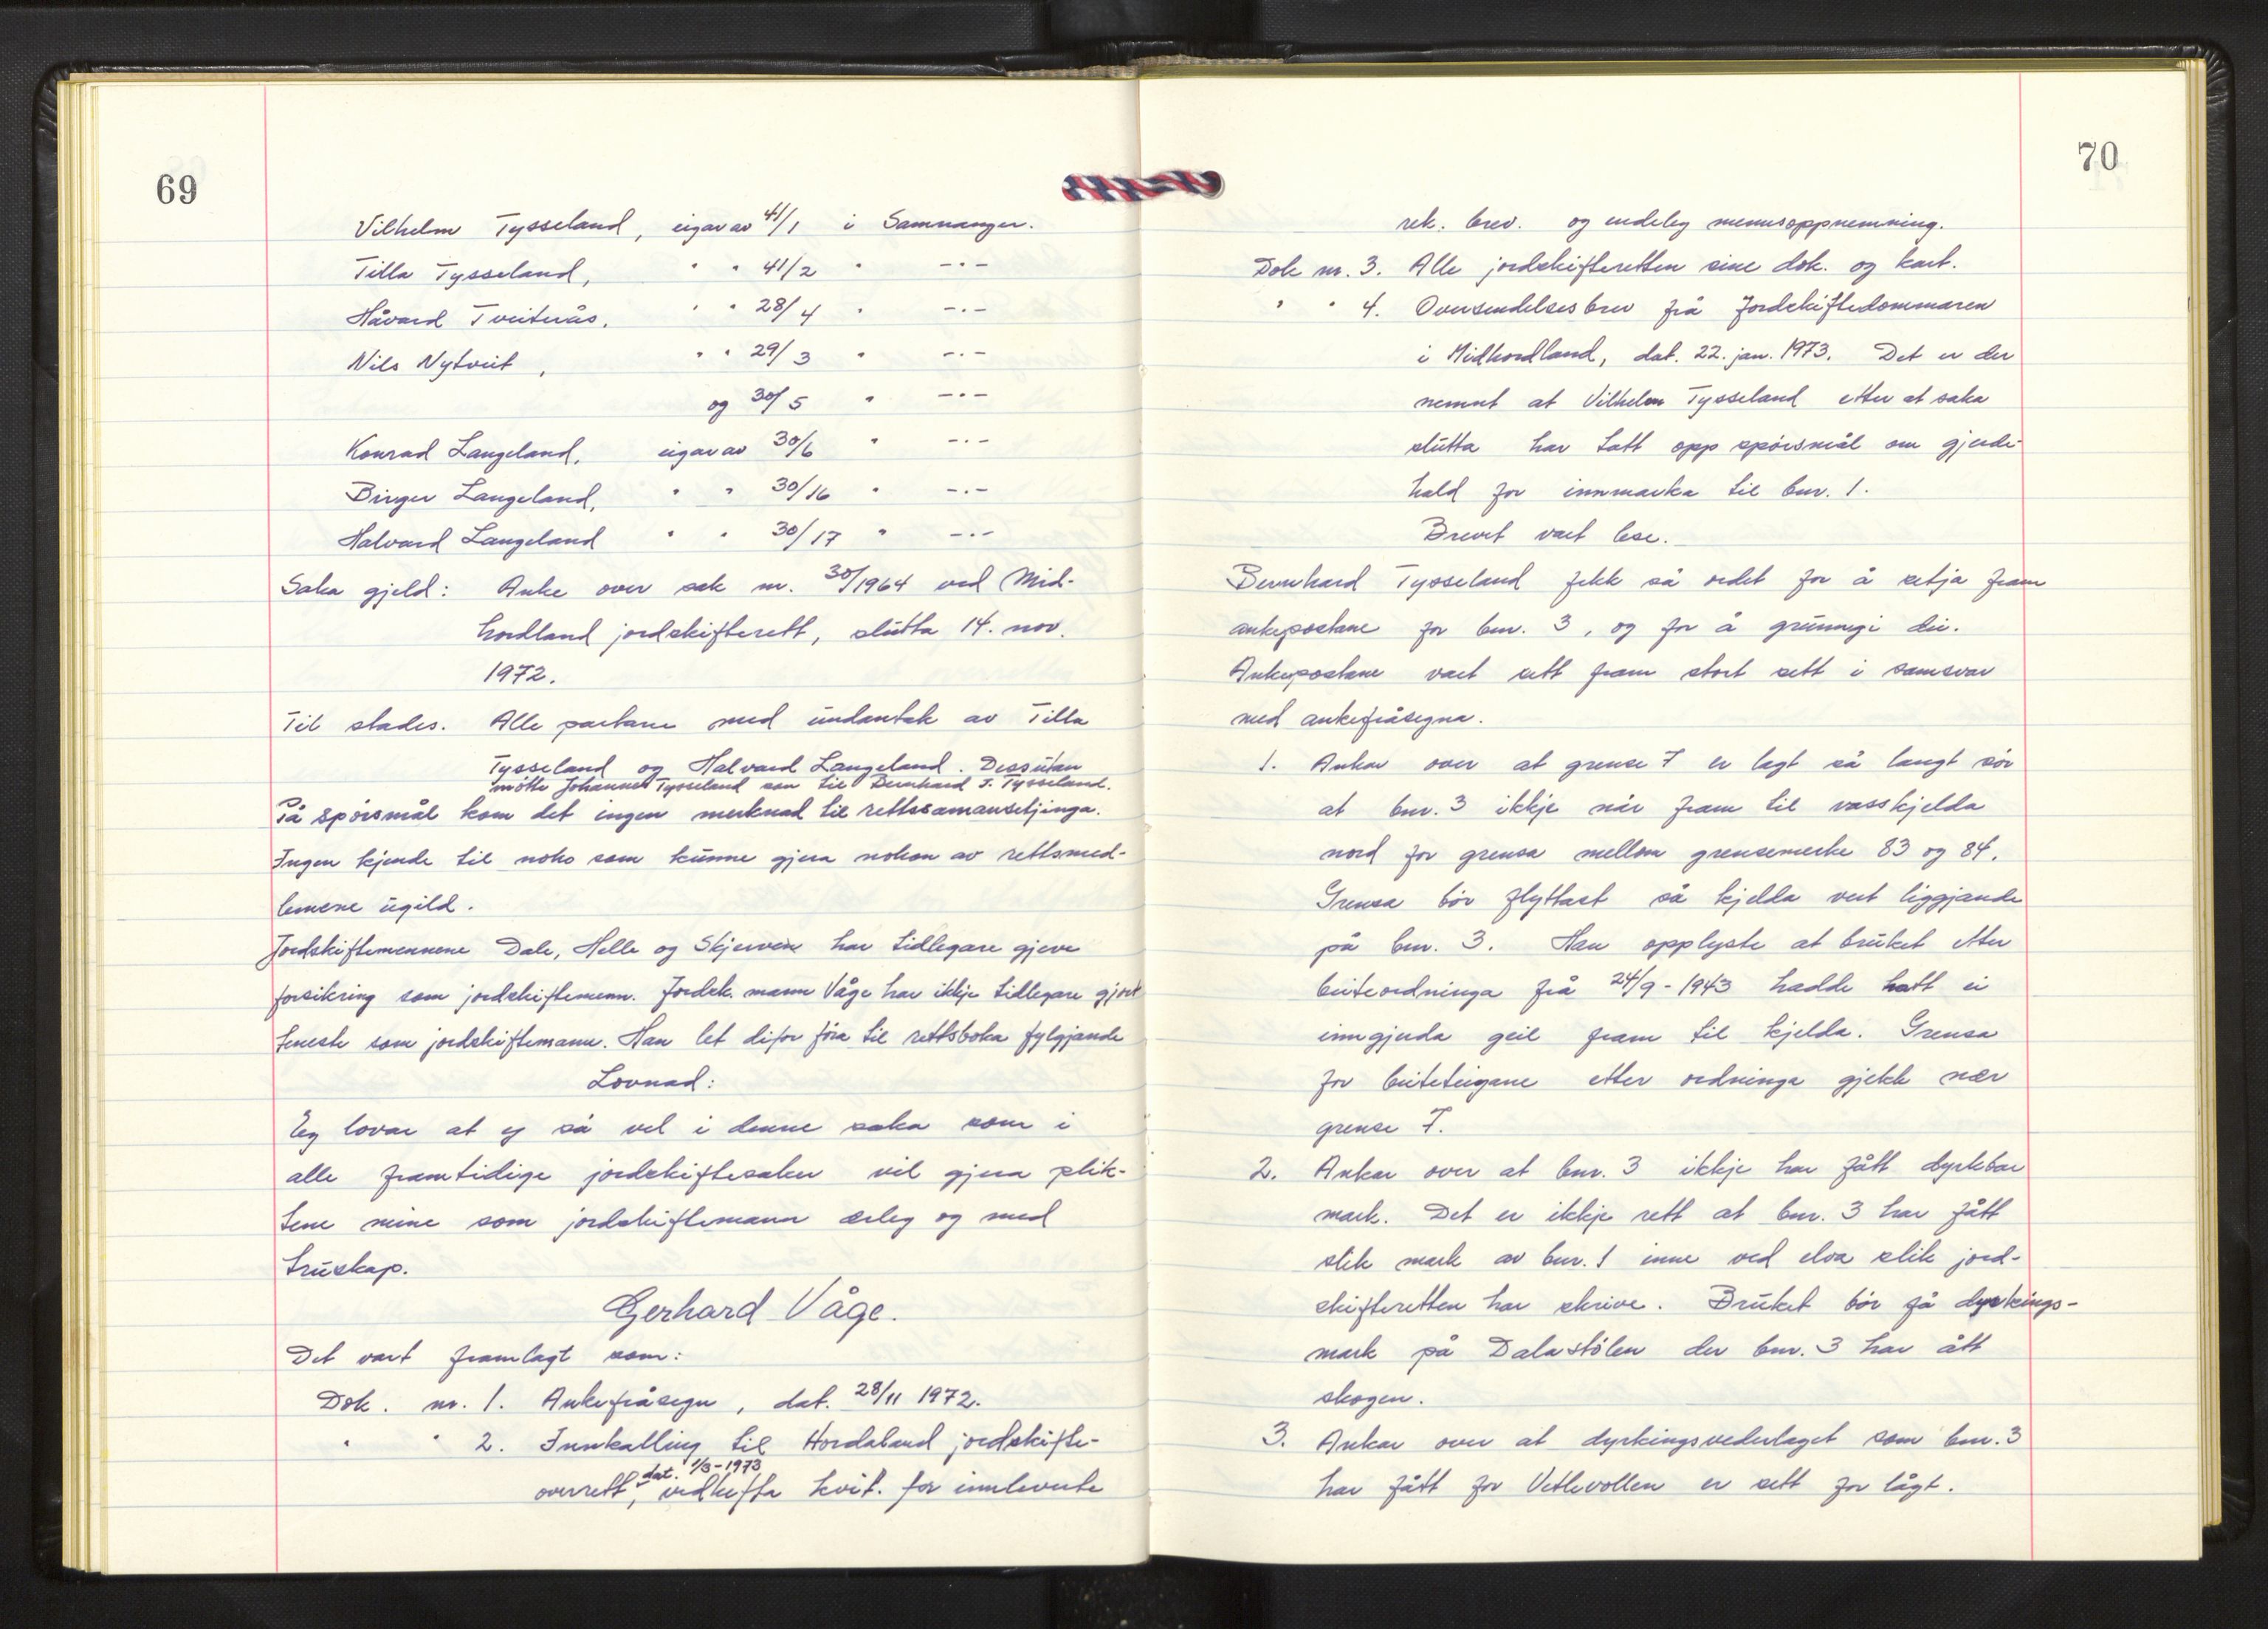 69
Vilhelm Tysseland, eigar av 41/1 i Samnanger.
Tilla Tysseland, " " 41/2 " -.-
Håvard Tveiterås, " " 28/4 " -.-
Nils Nytveit, " " 29/3 " -.-
og 30/5 " -.-
Konrad Langeland, eigar av 30/6 " -.-
Birger Langeland, " " 30/16 " -.-
Halvard Langeland " " 30/17 " -.-
Saka gjeld: Anke over sak nr. 30/1964 ved Mid-
hordland jordskifterett, slutta 14. nov.
1972.
Til stades. Alle partane med undantak av Tilla
Tysseland og Halvard Langeland. Dessutan
møtte Johannes Tysseland son til Bernhard J. Tysseland.
På spørsmål kom det ingen merknad til rettssamansetjinga.
Ingen kjende til noko som kunne gjera nokon av rettsmed-
lemene ugild.
Jordskiftemennene Dale, Helle og Skjerven har tidlegare gjeve
forsikring som jordskiftemenn. Jordsk. mann Våge har ikkje tidlegare gjort
teneste som jordskiftemann. Han let difor føra til rettsboka fylgjande
Lovnad:
Eg lovar at eg så vel i denne saka som i
alle framtidige jordskiftesaker vil gjera plik-
tene mine som jordskiftemann ærleg og med
truskap.
Gerhard Våge.
Det vart framlagt som:
Dok. nr. 1. Ankefråsegn, dat. 28/11 1972.
" " 2. Innkalling til Hordaland jordskifte-
overrett, dat. 1/3-1973 vedhefta kvit. for innleverte
70
rek. brev. og endeleg mennsoppnemning.
Dok nr. 3. Alle jordskifteretten sine dok. og kart.
" " 4. Oversendelsesbrev frå Jordskiftedommaren
i Midhordland, dat. 22. jan. 1973. Det er der
nemnt at Vilhelm Tysseland etter at saka
slutta har tatt opp spørsmål om gjerde-
hald for innmarka til bnr. 1.
Brevet vart lese.
Bernhard Tysseland fekk så ordet for å setja fram
ankepostane for bnr. 3, og for å grunngi dei.
Ankepostane vart sett fram stort sett i samsvar
med ankefråsegna.
1. Ankar over at grense 7 er lagt så langt sør
at bnr. 3 ikkje når fram til vasskjelda
nord for grensa mellom grensemerke 83 og 84.
Grensa bør flyttast så kjelda vert liggjande
på bnr. 3. Han opplyste at bruket etter
beiteordninga frå 24/9-1943 hadde hatt ei
inngjerda geil fram til kjelda. Grensa
for beiteteigane etter ordninga gjekk nær
grense 7.
2. Ankar over at bnr. 3 ikkje har fått dyrkbar
mark. Det er ikkje rett at bnr. 3 har fått
slik mark av bnr. 1 inne ved elva slik jord-
skifteretten har skrive. Bruket bør få dyrkings-
mark på Dalastølen der bnr. 3 har ått
skogen.
3. Ankar over at dyrkingsvederlaget som bnr. 3
har fått for Vetlevollen er sett for lågt.